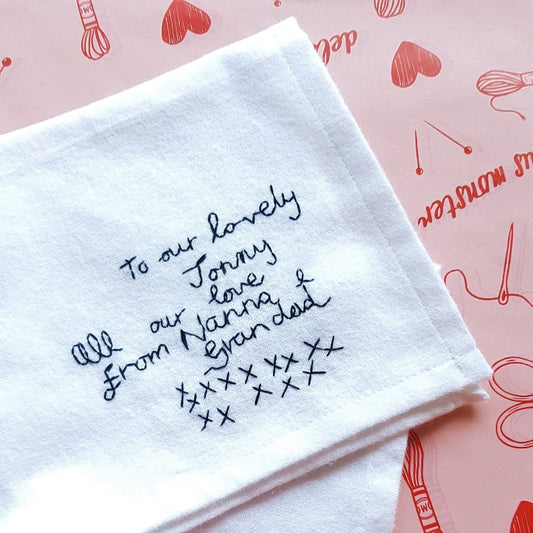 To our lovely
Jonny
All our love
From Nanna &
Grandad
xxxxx xx xx
xx x x x
deli
us monster